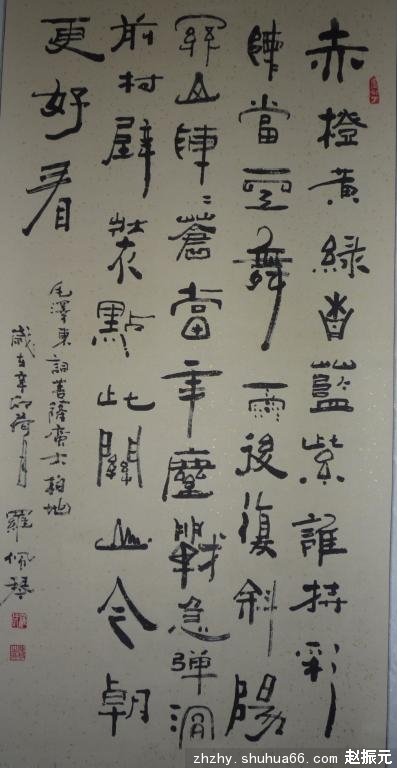 赤橙黃綠青藍紫誰持彩
練當空舞雨後復斜陽
關山陣〻蒼當年鏖戰急弹洞
前村壁裝點此關山今朝
更好看
毛澤東詞菩薩蠻大柏地
歲在辛卯荷月 羅佩琴
zhzhy.shuhua66.com 赵振元